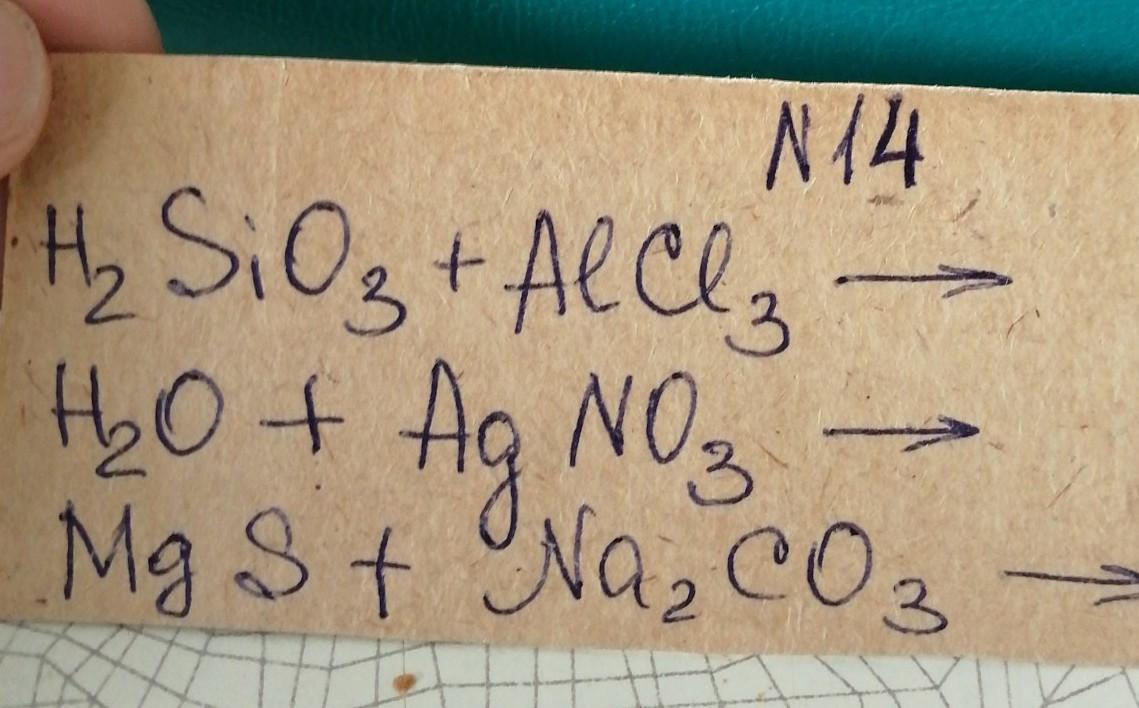 N14
H₂SiO₃ + AlCl₃ →
H₂O + AgNO₃ →
MgS + Na₂CO₃ →